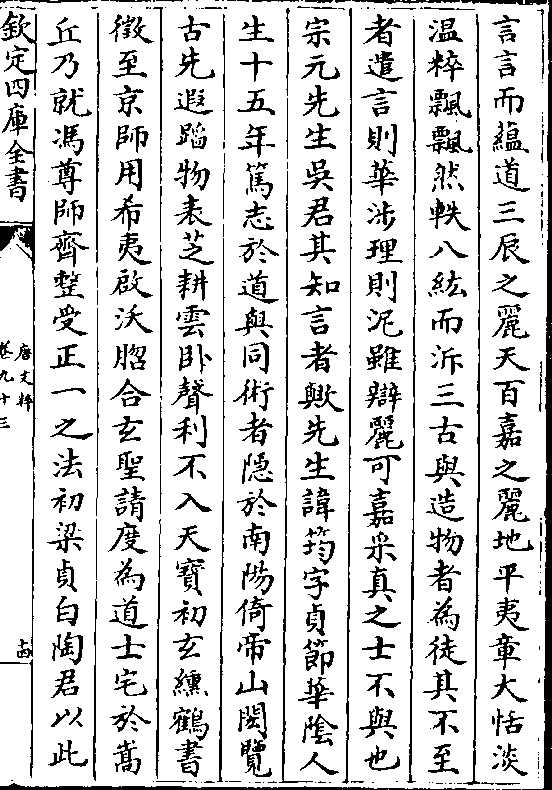 言言而蘊道三辰之麗天百嘉之麗地平夷章大恬淡
温粹飄飄然軼八紘而泝三古與造物者為徒其不至
者遣言則華涉理則泥雖辯麗可嘉采真之士不與也
宗元先生吳君其知言者歟先生諱筠字貞節華隂人
生十五年篤志於道與同術者隠於南陽倚帝山閎覽
古先遐蹈物表芝耕雲卧聲利不入天寶初玄纁鶴書
徵至京師用希夷啟沃脗合玄聖請度為道士宅於嵩
丘乃就馮尊師齊整受正一之法初梁貞白陶君以此
欽定四庫全書
唐文粹
卷九十三